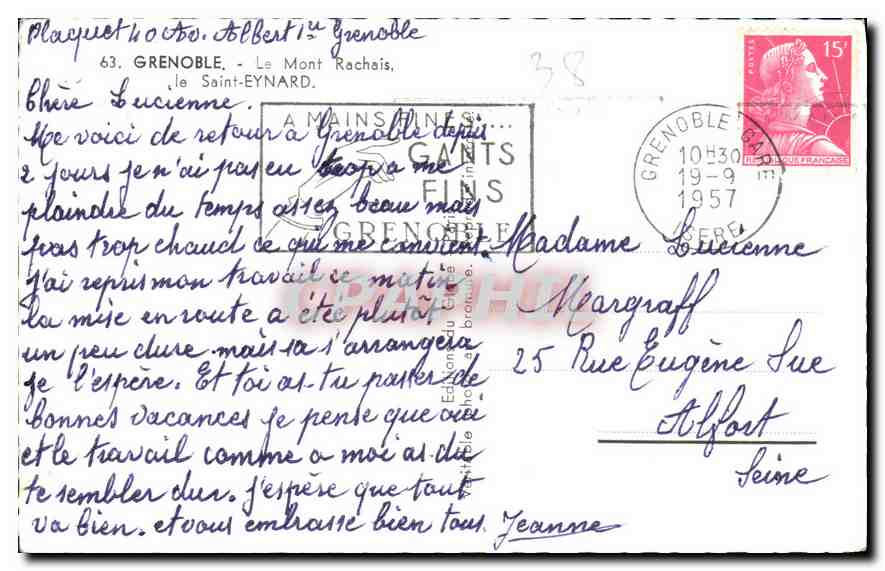 Plaquet 40 Av. Albert 1er Grenoble
63. GRENOBLE. - Le Mont Rachais,
le Saint-EYNARD.
Chère Lucienne.
Me voici de retour à Grenoble depuis
2 jours je n'ai pas eu trop a me
plaindre du temps assez beau mais
pas trop chaud ce qui me convient.
j'ai repris mon travail ce matin
la mise en route a étée plutôt
un peu dure mais sa s'arrangera
je l'espère. Et toi as-tu passer de
bonnes vacances je pense que oui
et le travail comme a moi as du
te sembler dur. j'espère que tout
va bien. et vous embrasse bien tous. Jeanne
38
A MAINS FINES....
GANTS
FINS
GRENOBLE
GRENOBLE GARE
10H30
19-9
1957
ISERE
POSTES
15F
REPUBLIQUE FRANCAISE
Editions du Globe
Véritable photo au bromure.
Madame Lucienne
Margraff
25 Rue Eugène Sue
Alfort
Seine